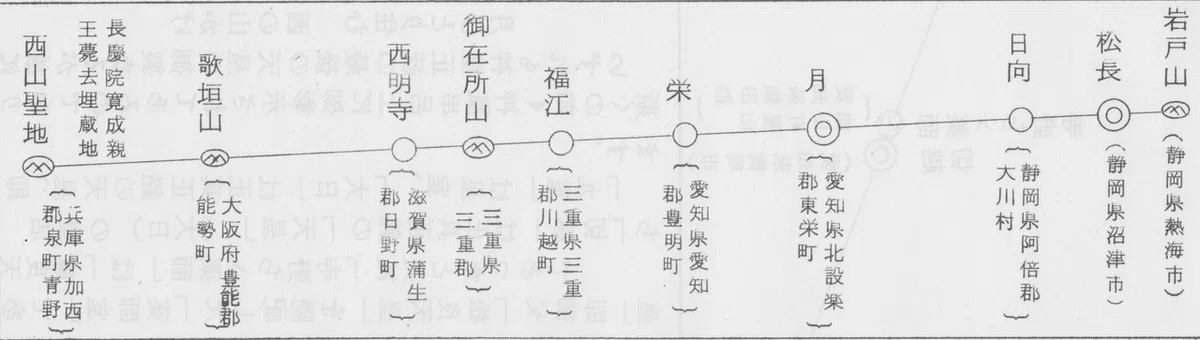 岩戸山
(静岡県熱海市)
松長
(静岡県沼津市)
日向
(静岡県阿倍郡
大川村)
月
(愛知県北設楽
郡東栄町)
栄
(愛知県愛知
郡豊明町)
福江
(三重県三重
郡川越町)
御在所山
(三重県
三重郡)
西明寺
(滋賀県蒲生
郡日野町)
歌垣山
(大阪府豊能郡
能勢町)
長慶院寛成親
王薨去埋蔵地
西山聖地
(兵庫県加西
郡泉町青野)